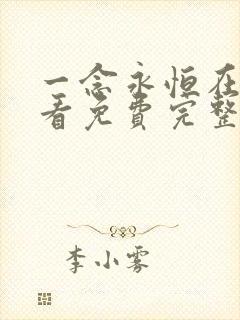 一念永恒在
看免费完整
李小雾